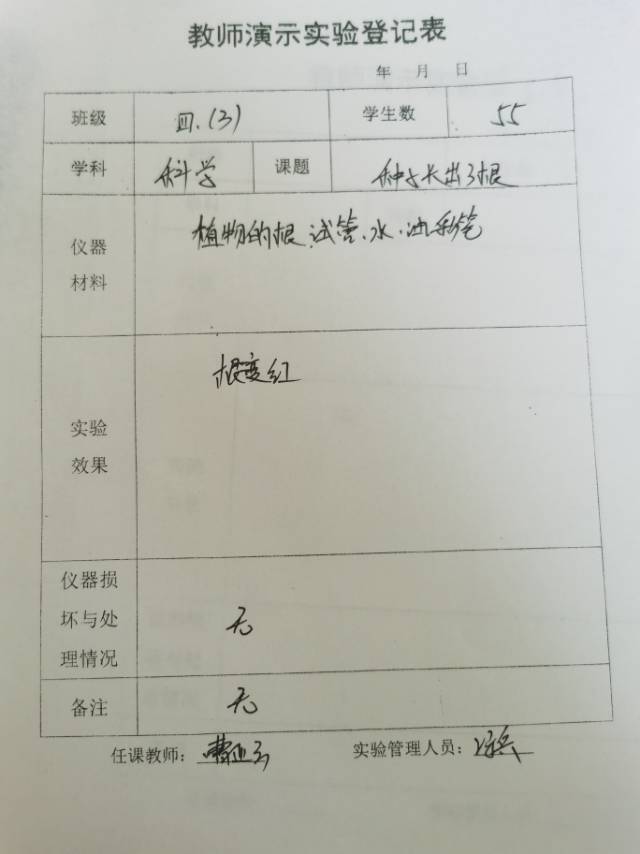 教师演示实验登记表
年 月 日
班级 四.(3) 学生数 55
学科 科学 课题 种子长出了根
仪器 植物的根、试管、水、油彩笔
材料
根变红
实验
效果
仪器损
坏与处 无
理情况
备注 无
任课教师: 实验管理人员: